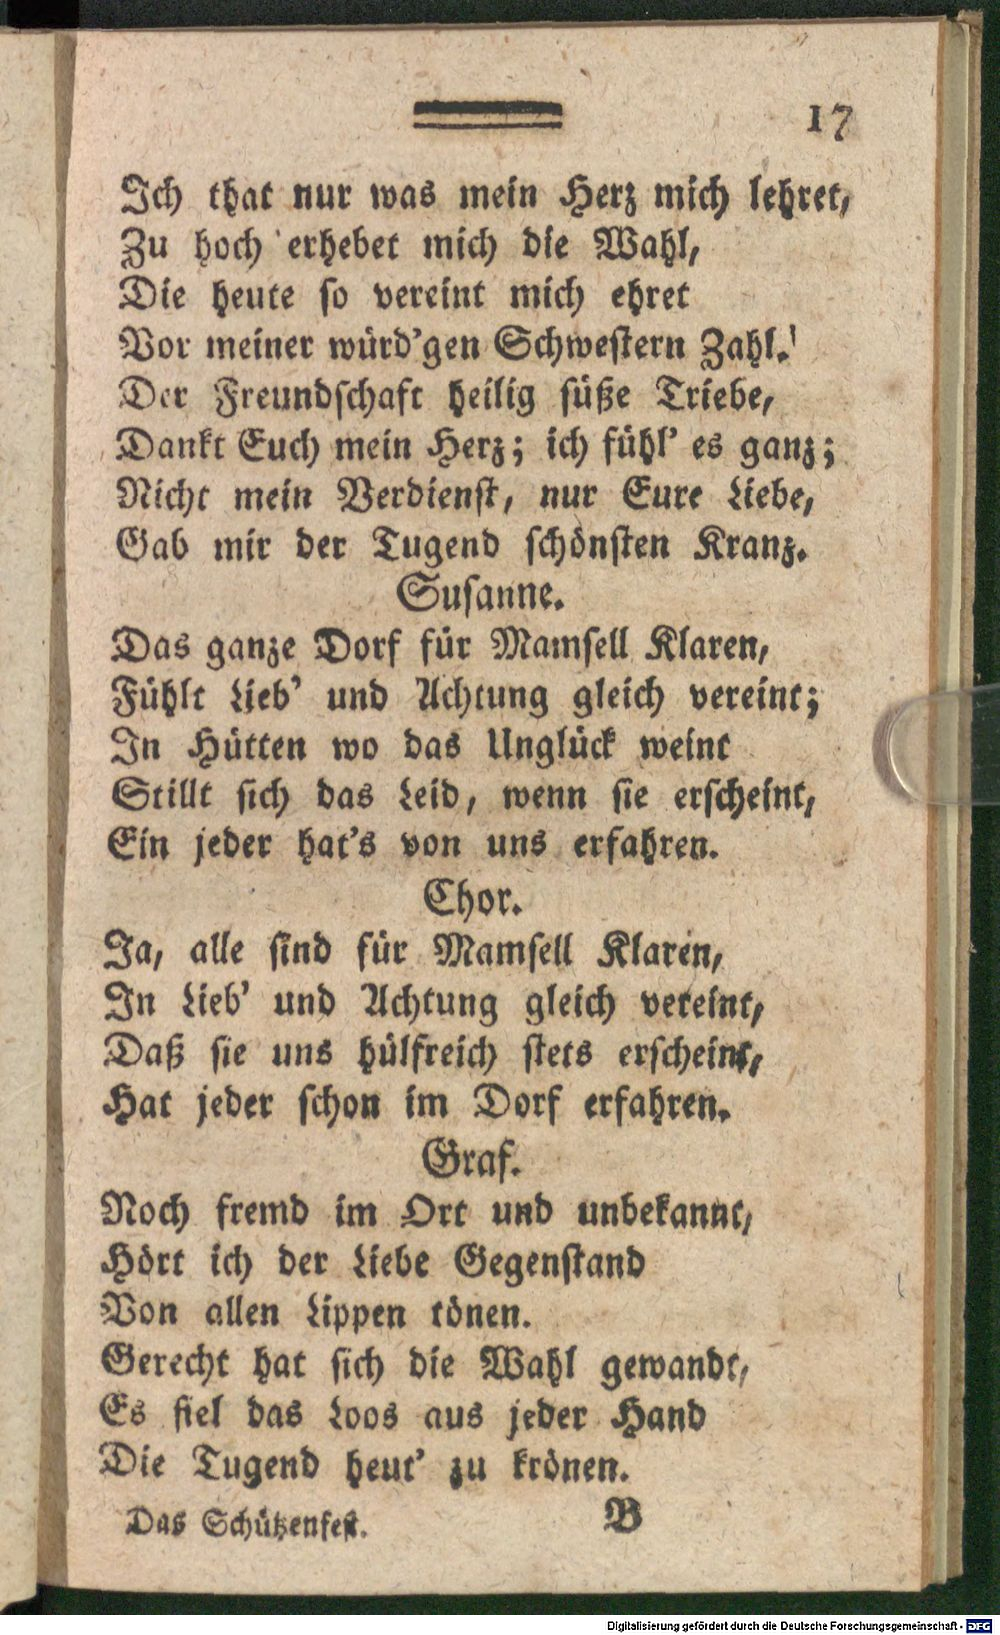 17
Ich that nur was mein Herz mich lehret,
Zu hoch erhebet mich die Wahl,
Die heute so vereint mich ehret
Vor meiner würd'gen Schwestern Zahl.
Der Freundschaft heilig süße Triebe,
Dankt Euch mein Herz; ich fühl' es ganz;
Nicht mein Verdienst, nur Eure Liebe,
Gab mir der Tugend schönsten Kranz.
Susanne.
Das ganze Dorf für Mamsell Klaren,
Fühlt Lieb' und Achtung gleich vereint;
In Hütten wo das Unglück weint
Stillt sich das Leid, wenn sie erscheint,
Ein jeder hat's von uns erfahren.
Chor.
Ja, alle sind für Mamsell Klaren,
In Lieb' und Achtung gleich vereint,
Daß sie uns hülfreich stets erscheint,
Hat jeder schon im Dorf erfahren.
Graf.
Noch fremd im Ort und unbekannt,
Hört ich der Liebe Gegenstand
Von allen Lippen tönen.
Gerecht hat sich die Wahl gewandt,
Es fiel das Loos aus jeder Hand
Die Tugend heut' zu krönen.
Das Schützenfest. B
Digitalisierung gefördert durch die Deutsche Forschungsgemeinschaft - DFG